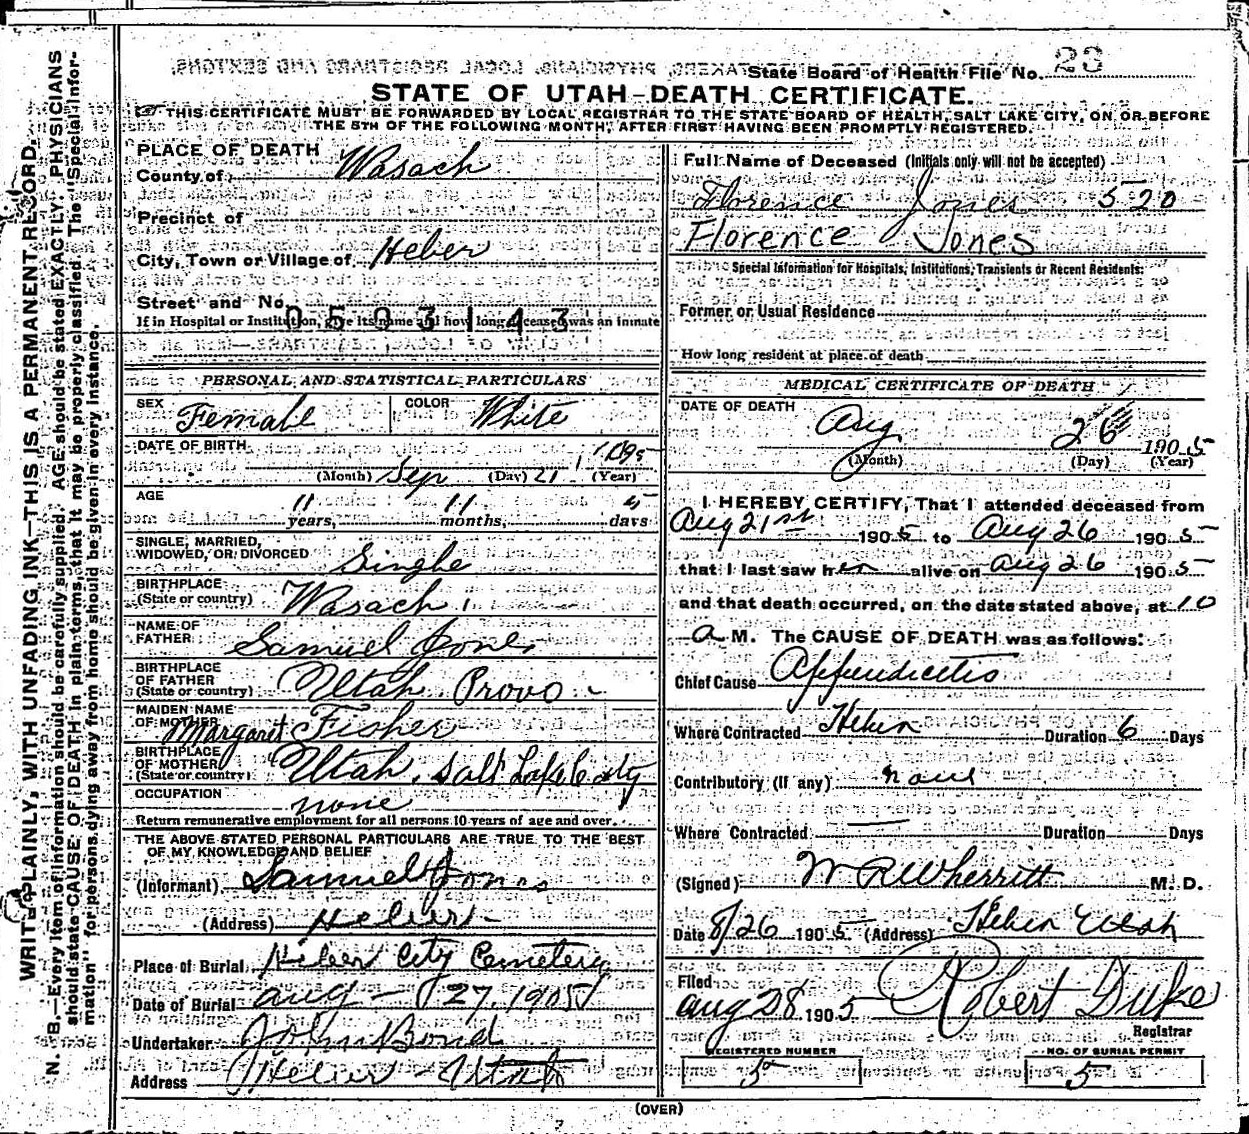 State Board of Health File No. 23
STATE OF UTAH-DEATH CERTIFICATE.
THIS CERTIFICATE MUST BE FORWARDED BY LOCAL REGISTRAR TO THE STATE BOARD OF HEALTH, SALT LAKE CITY, ON OR BEFORE
THE 5TH OF THE FOLLOWING MONTH, AFTER FIRST HAVING BEEN PROMPTLY REGISTERED.
WRITE PLAINLY, WITH UNFADING INK-THIS IS A PERMANENT RECORD.
N. B.-Every item of information should be carefully supplied. AGE should be stated EXACTLY. PHYSICIANS
should state CAUSE OF DEATH in plain terms, that it may be properly classified. The "Special Infor-
mation" for persons dying away from home should be given in every instance.
PLACE OF DEATH
County of Wasach
Precinct of
City, Town or Village of Heber
Street and No.
0503143
If in Hospital or Institution, give its name and how long deceased was an inmate
PERSONAL AND STATISTICAL PARTICULARS
SEX Female COLOR White
DATE OF BIRTH
(Month) Sep (Day) 21 (Year)
AGE 11 years, 11 months, 5 days
SINGLE, MARRIED,
WIDOWED, OR DIVORCED Single
BIRTHPLACE
(State or country) Wasach
NAME OF
FATHER Samuel Jones
BIRTHPLACE
OF FATHER
(State or country) Utah Provo
MAIDEN NAME
OF MOTHER Margaret Fisher
BIRTHPLACE
OF MOTHER
(State or country) Utah, Salt Lake City
OCCUPATION none
Return remunerative employment for all persons 10 years of age and over.
THE ABOVE STATED PERSONAL PARTICULARS ARE TRUE TO THE BEST
OF MY KNOWLEDGE AND BELIEF
(Informant) Samuel Jones
(Address) Heber
Place of Burial Heber City Cemetery
Date of Burial Aug - 27, 1905
Undertaker John Bond
Address Heber Utah
Full Name of Deceased (Initials only will not be accepted)
Florence Jones 520
Florence Jones
Special Information for Hospitals, Institutions, Transients or Recent Residents:
Former or Usual Residence
How long resident at place of death
MEDICAL CERTIFICATE OF DEATH
DATE OF DEATH
Aug 26 1905
(Month) (Day) (Year)
I HEREBY CERTIFY, That I attended deceased from
Aug 21st 1905 to Aug 26 1905
that I last saw her alive on Aug 26 1905
and that death occurred, on the date stated above, at 10
A M. The CAUSE OF DEATH was as follows:
Chief Cause Appendicitis
Where Contracted Heber Duration 6 Days
Contributory (If any) none
Where Contracted — Duration Days
(Signed) W R Wherritt M. D.
Date 8/26 1905 (Address) Heber Utah
Filed
Aug 28 1905 Robert Duke
Registrar
REGISTERED NUMBER
5
NO. OF BURIAL PERMIT
5
(OVER)